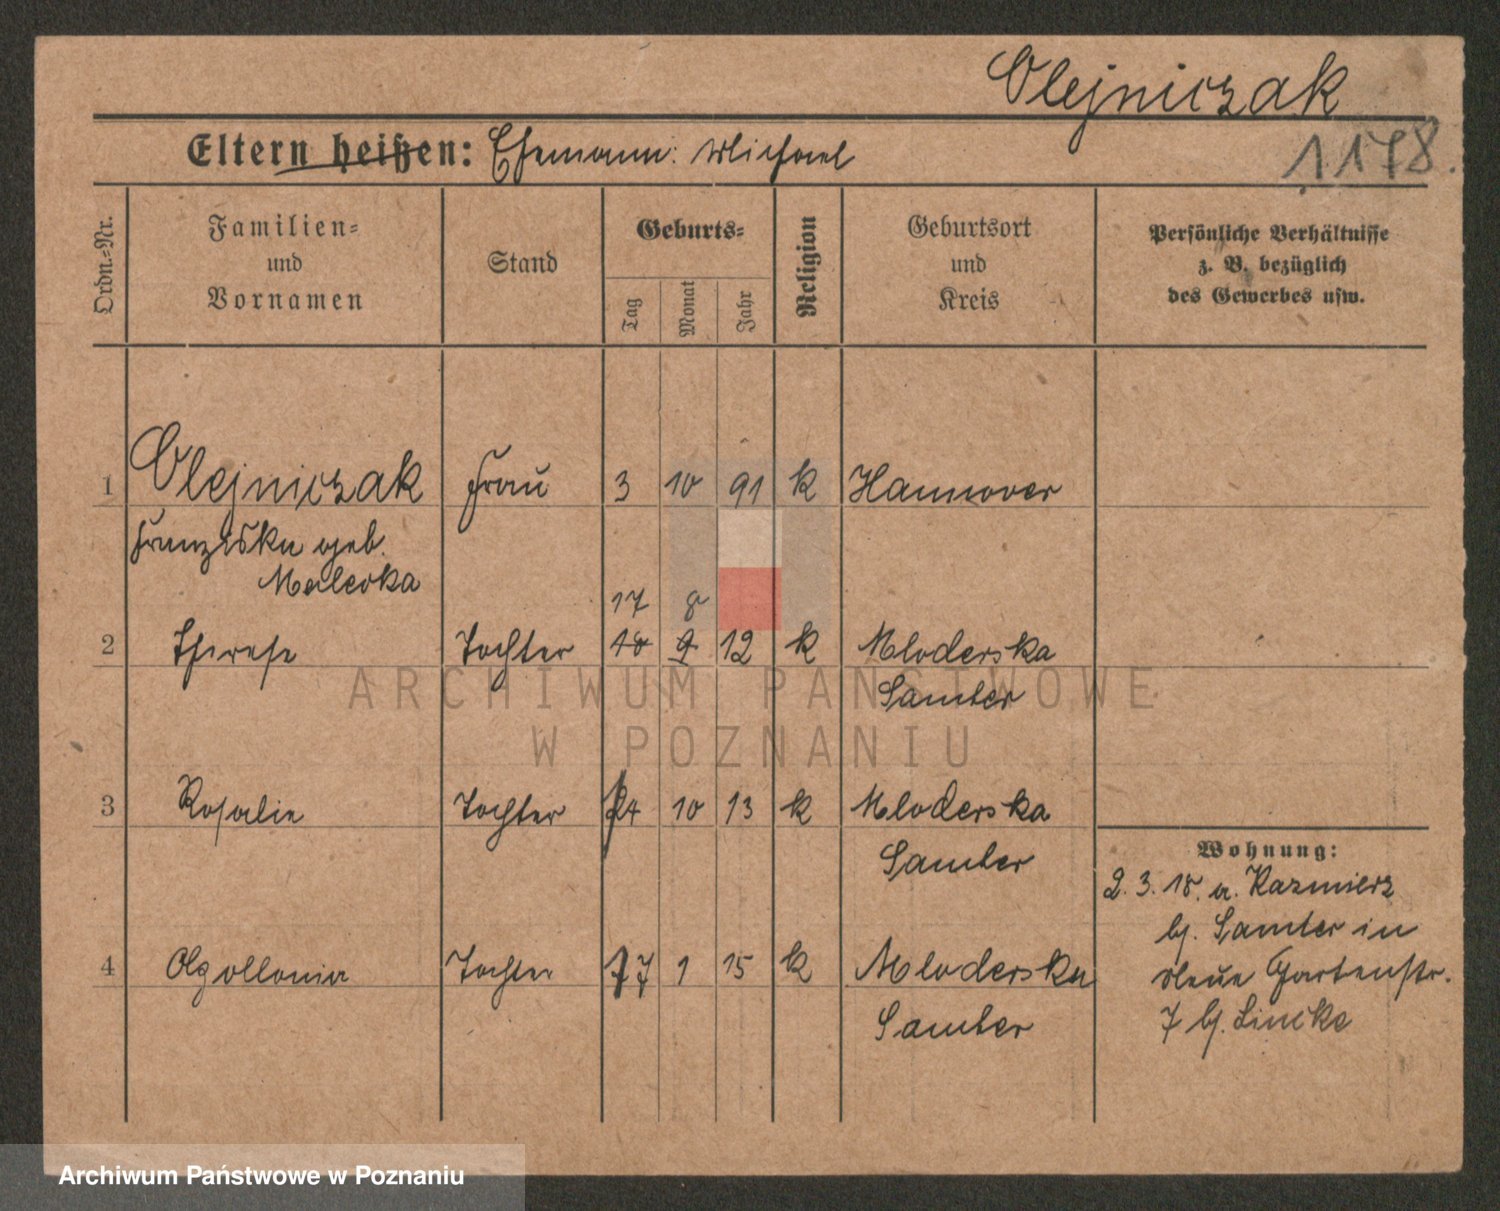 Olejniczak
Eltern heißen: Ehemann: Michael
1178.
Ordn.-Nr.
Familien-
und
Vornamen
Stand
Geburts-
Tag
Monat
Jahr
Religion
Geburtsort
und
Kreis
Persönliche Verhältnisse
z. B. bezüglich
des Gewerbes usw.
1 Olejniczak Frau 3 10 91 k Hannover
Franziska geb.
17 8
2 Therese Tochter 18 9 12 k Mloderska
Samter
3 Rosalie Tochter 24 10 13 k Mloderska
Samter
4 Tochter 1 15 k Mloderska
Samter
Wohnung:
2.3.18. a. Kazmierz
bz. Samter in
Neue Gartenstr.
7 bz. Lincke
ARCHIWUM PAŃSTWOWE
W POZNANIU
Archiwum Państwowe w Poznaniu